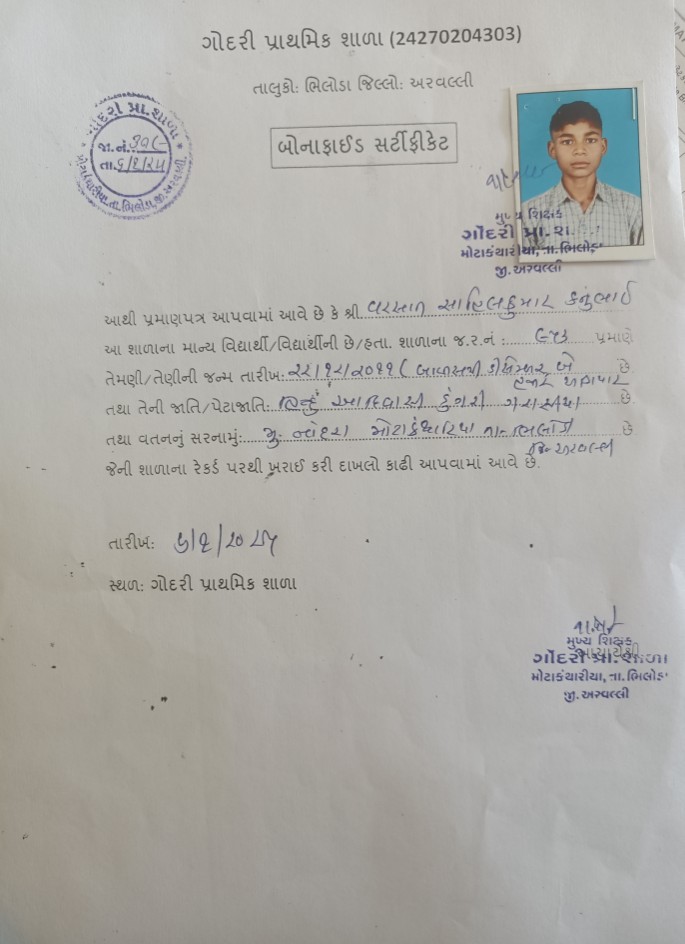 ગોદરી પ્રાથમિક શાળા (24270204303)
તાલુકો: ભિલોડા જિલ્લો: અરવલ્લી
ગોદરી પ્રા. શાળા
જા.નં.
તા. ૬/૧/૨૫
બોનાફાઈડ સર્ટીફીકેટ
મુખ્ય શિક્ષક
ગોદરી પ્રા. શા.
મોટાકંથારીયા, તા. ભિલોડા
જી. અરવલ્લી
આથી પ્રમાણપત્ર આપવામાં આવે છે કે શ્રી વરસાત સાહિલકુમાર કનુભાઈ
આ શાળાના માન્ય વિદ્યાર્થી/વિદ્યાર્થીની છે/હતા. શાળાના જ.ર.નં : પ્રમાણે
તેમણી/તેણીની જન્મ તારીખ: ૨૨/૧૨/૨૦૧૧ ( બાવીસમી ડીસેમ્બર બે છે.
હજાર અગિયાર
તથા તેની જાતિ/પેટાજાતિ: હિન્દુ આદિવાસી ડુંગરી ગરાસીયા છે
તથા વતનનું સરનામું: મુ. મોટાકંથારિયા તા. ભિલોડા છે
જિ. અરવલ્લી
જેની શાળાના રેકર્ડ પરથી ખરાઈ કરી દાખલો કાઢી આપવામાં આવે છે.
તારીખ: ૬/૧/૨૦૨૫
સ્થળ: ગોદરી પ્રાથમિક શાળા
મુખ્ય શિક્ષક
આચાર્યશ્રી
ગોદરી પ્રા. શાળા
મોટાકંથારીયા, તા. ભિલોડા
જી. અરવલ્લી